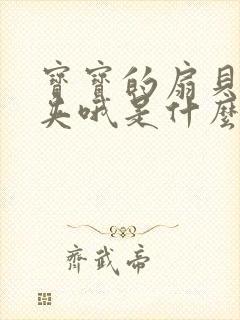 寶寶的扇貝
吳哦是什麼
齊武帝